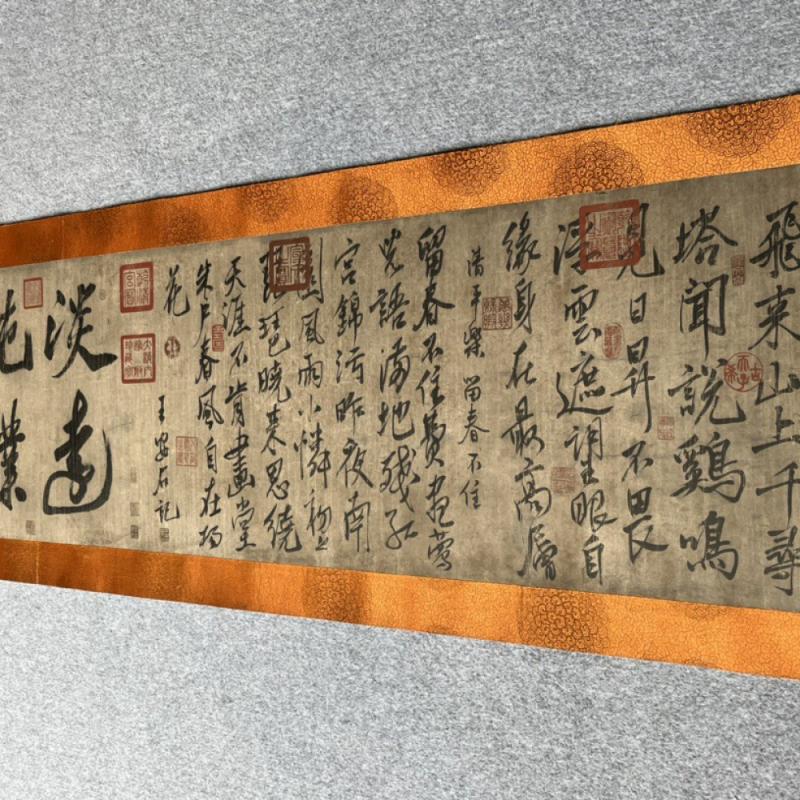 飛来山上千尋
塔聞說鷄鳴
見日昇不畏
浮雲遮望眼自
緣身在最高層
清平樂 留春不住
留春不住費盡鶯
兒語滿地殘紅
宮錦污昨夜南
園風雨小憐初上
琵琶曉來思繞
天涯不肯畫堂
朱戶春風自在楊
花
王安石記
淡遠